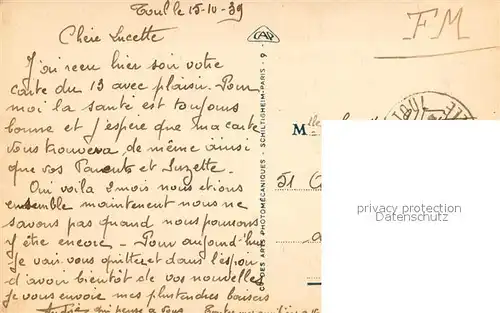 Toul le 15-10-39
FM
Chère Lucette
J'ai recu hier soir votre
carte du 13 avec plaisir. Pour
moi la santé est toujours
bonne et j'espère que ma carte
vous trouvera de même ainsi
que vos Parents et Suzette.
Oui voila 2 mois nous etions
ensemble maintenant nous ne
savons pas quand nous pourrons
y être encore - Pour aujourd'hui
je vais vous quitter et dans l'espoir
d'avoir bientôt de vos nouvelles
je vous envoie mes plus tendres baisers
qui pense a vous
CAP
CIE DES ARTS PHOTOMÉCANIQUES - SCHILTIGHEIM-PARIS - 9 -
Mlle
51
privacy protection
Datenschutz